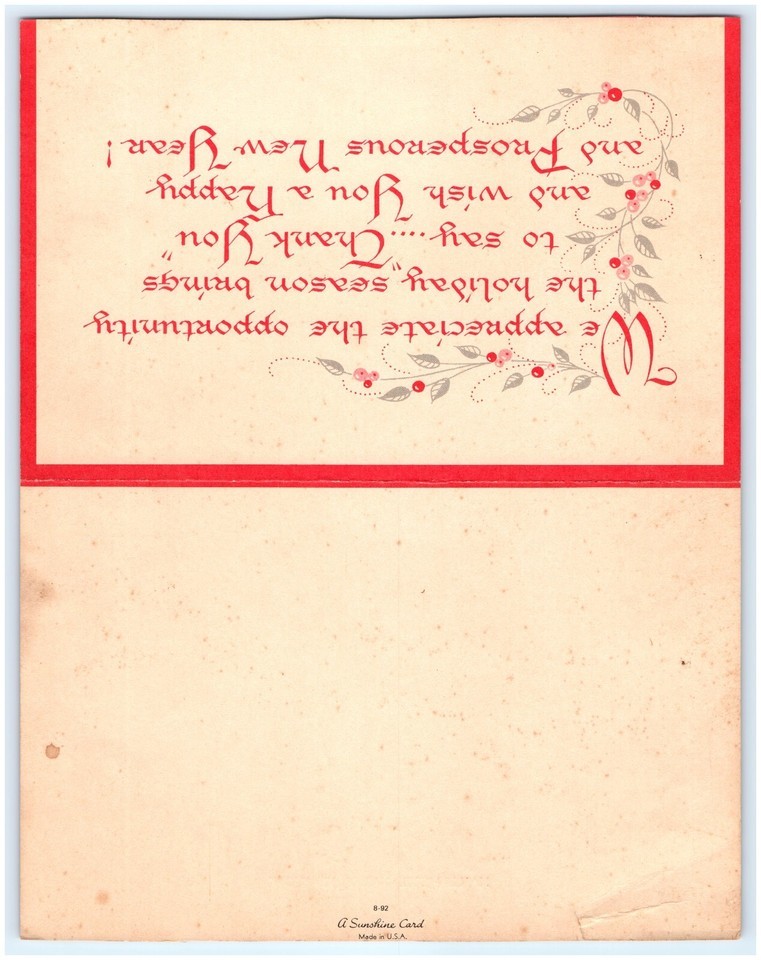 We appreciate the opportunity
the holiday season brings
to say...."Thank You"
and wish You a Happy
and Prosperous New Year!
8-92
A Sunshine Card
Made in U.S.A.